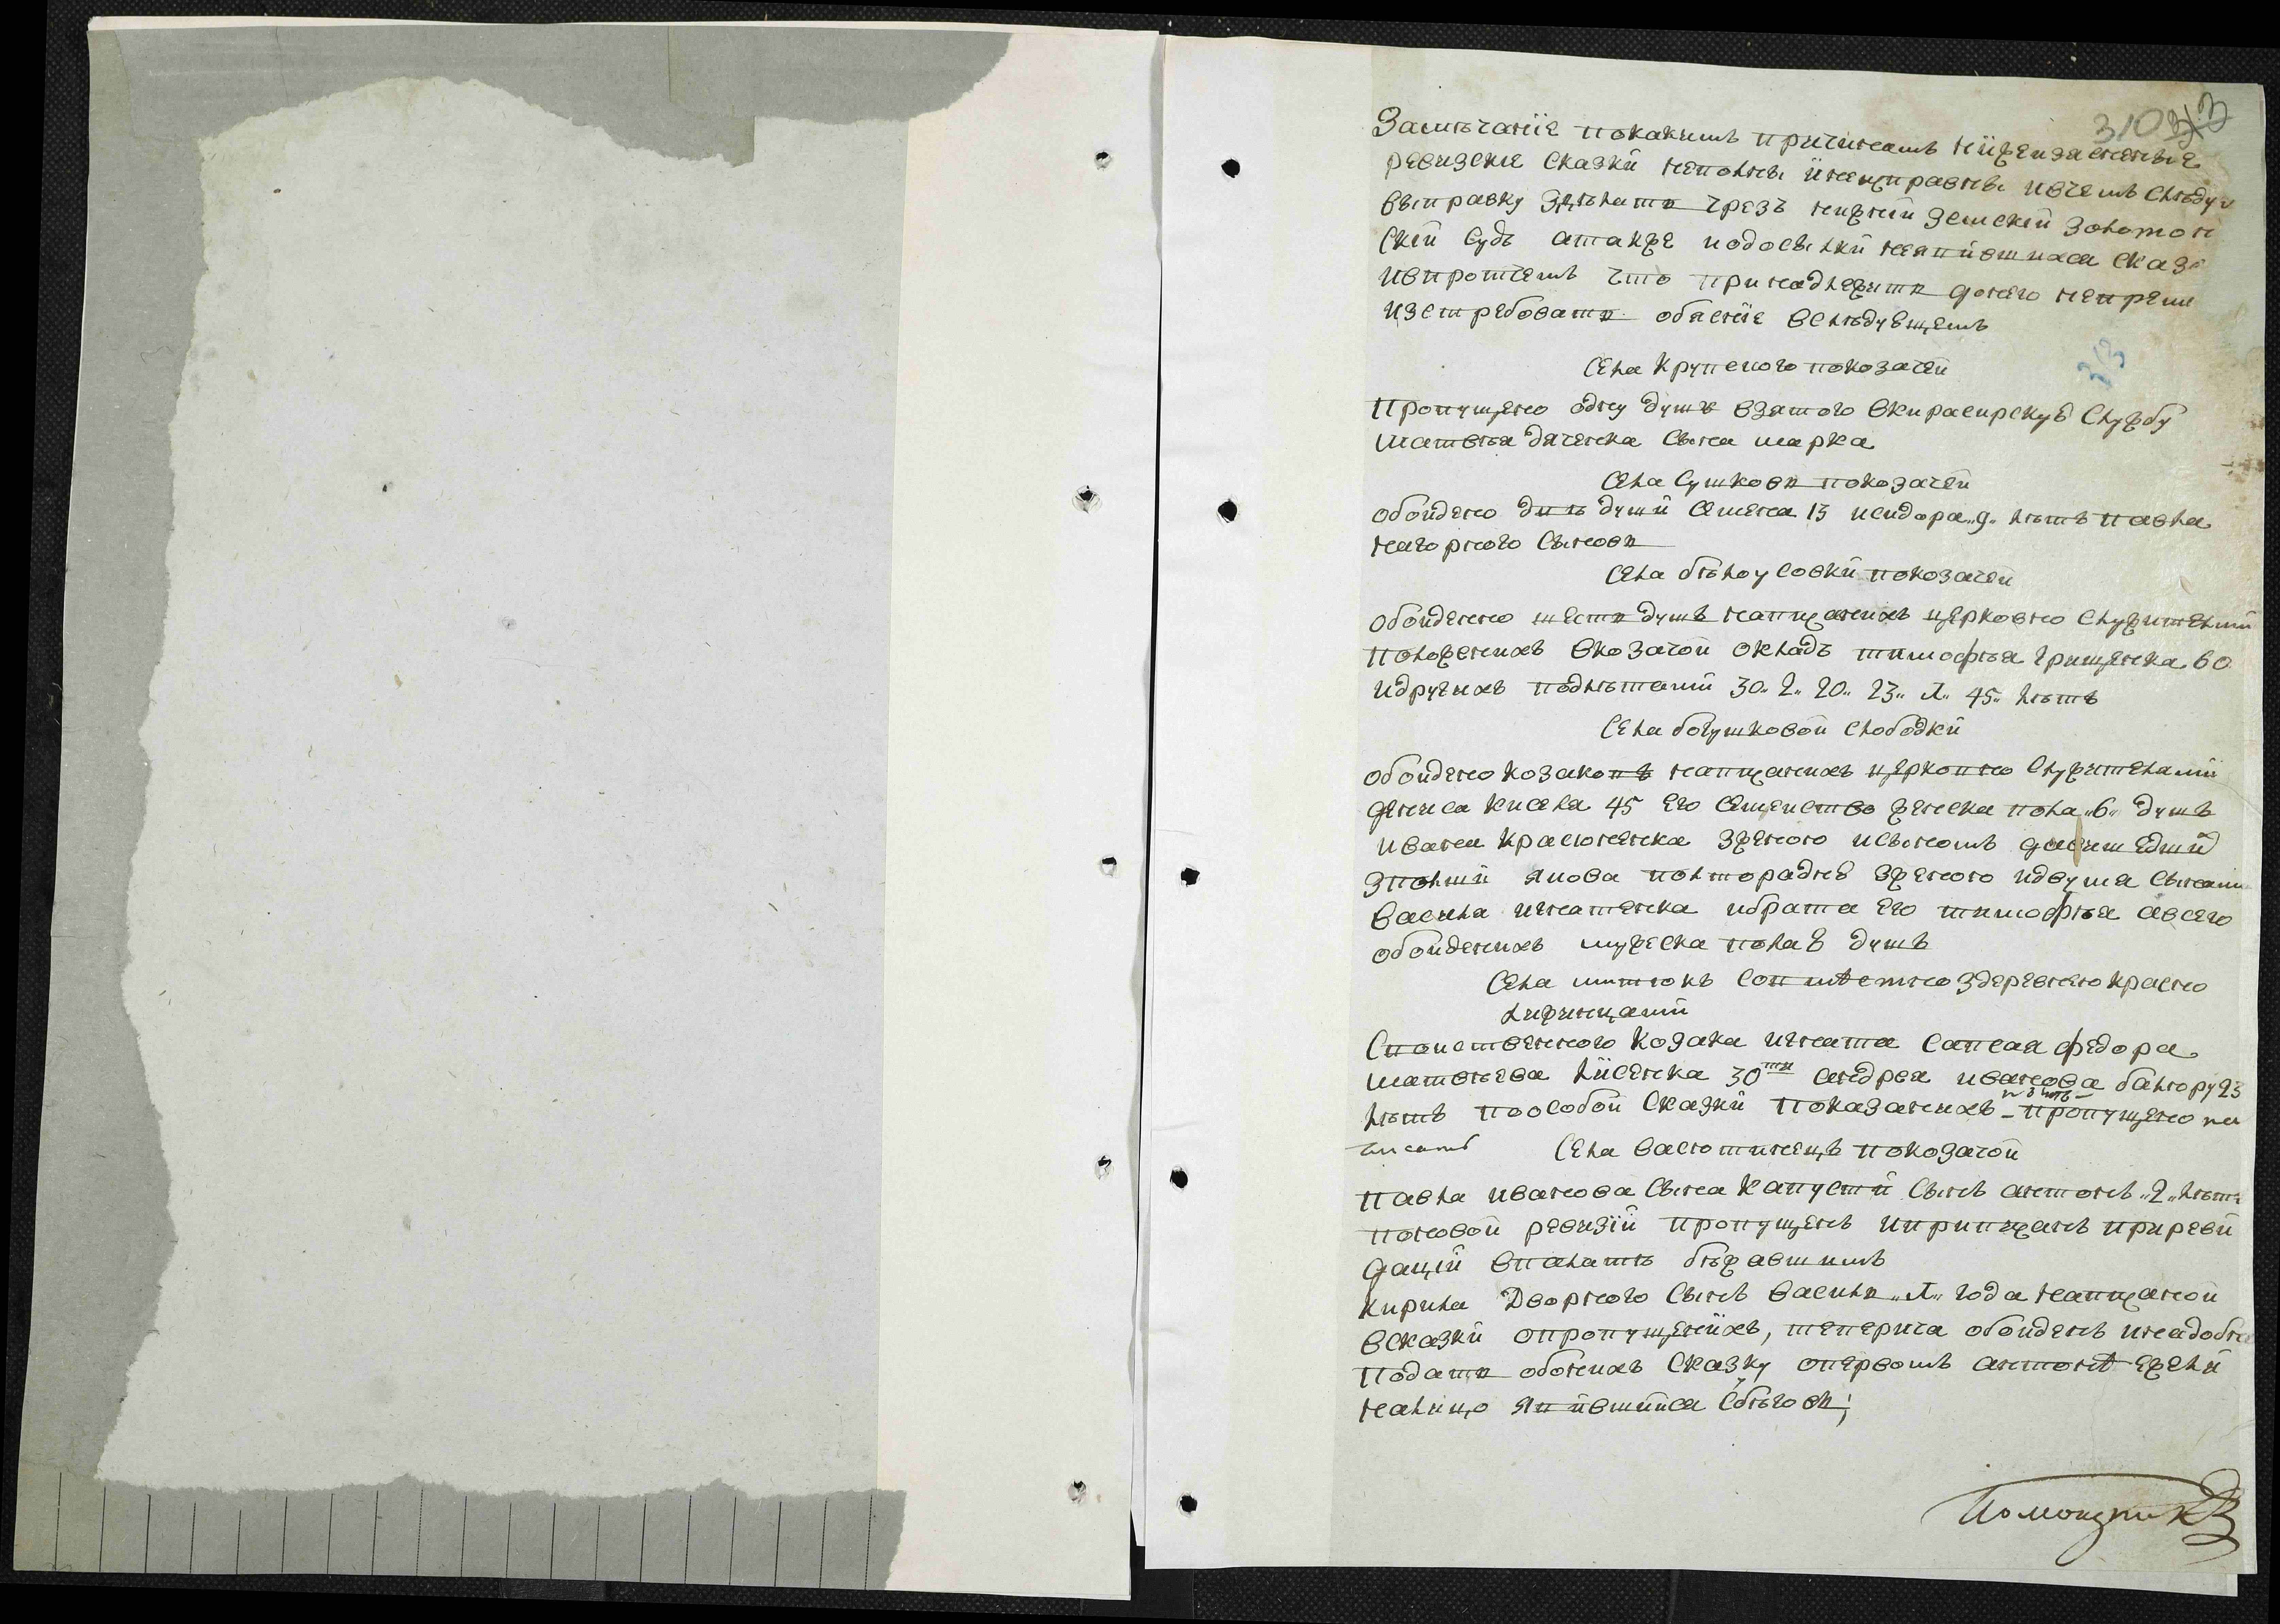 310 313
Замѣчаніе покакимъ причинамъ нижеизясненные
ревизские сказки неполны инеисправны ивчемъ слѣду
выправку здѣлать чрезъ нижній земскій золотон
скій судъ атакже иодосылки неявившихся сказ
ивпротчемъ что принадлежить донего непрем
изстребовать обясніе вслѣдующемъ
313
Села крупского показачей
Пропущено одну душъ взятого вкирасирскую службу
матвѣя дяченка сына марка
Села Сушковъ показачей
обойдено двѣ души семена 13 исидора 9 лѣтъ павла
нагорного сыновъ
Села бѣлоусовки показачей
обойденно шесть душъ написанихъ церковно служительми
положенихъ вкозачой окладъ тимофѣя грищенка 60
идругихъ подлѣтами 30 2 20 23 л 45 лѣтъ
Села богушковой слободки
обойдено козаковъ написанихъ церковно служителами
дениса кисела 45 его семейство женска пола 6 душъ
ивана красюненка зженою исыномъ
зполми якова полторадню зженою идвума сынами
василя игнатенка ибрата его тимофѣя авсего
обойденихъ мужеска пола 8 душъ
Села митлокъ совмѣстно здеревнею красно
лижинцами
Споиственного козака игната сапсая федора
матвѣева лисенка 30ти андрея иванова балтору 23
лѣтъ поособой сказки показанихъ пропущено
писать Села васютинецъ показачой
павла иванова сына капусти сынъ антонъ 2 лѣтъ
поновой ревизіи пропущенъ иприписанъ приреви
дации впалатѣ бѣжавшимъ
кирила дворного сынъ василь л года написаной
всказки опропущенихъ, теперича обойденъ инадобно
подать обонихъ сказку опервомъ антонѣ ежели
налицо явившийся сбѣговъ;
Помощник